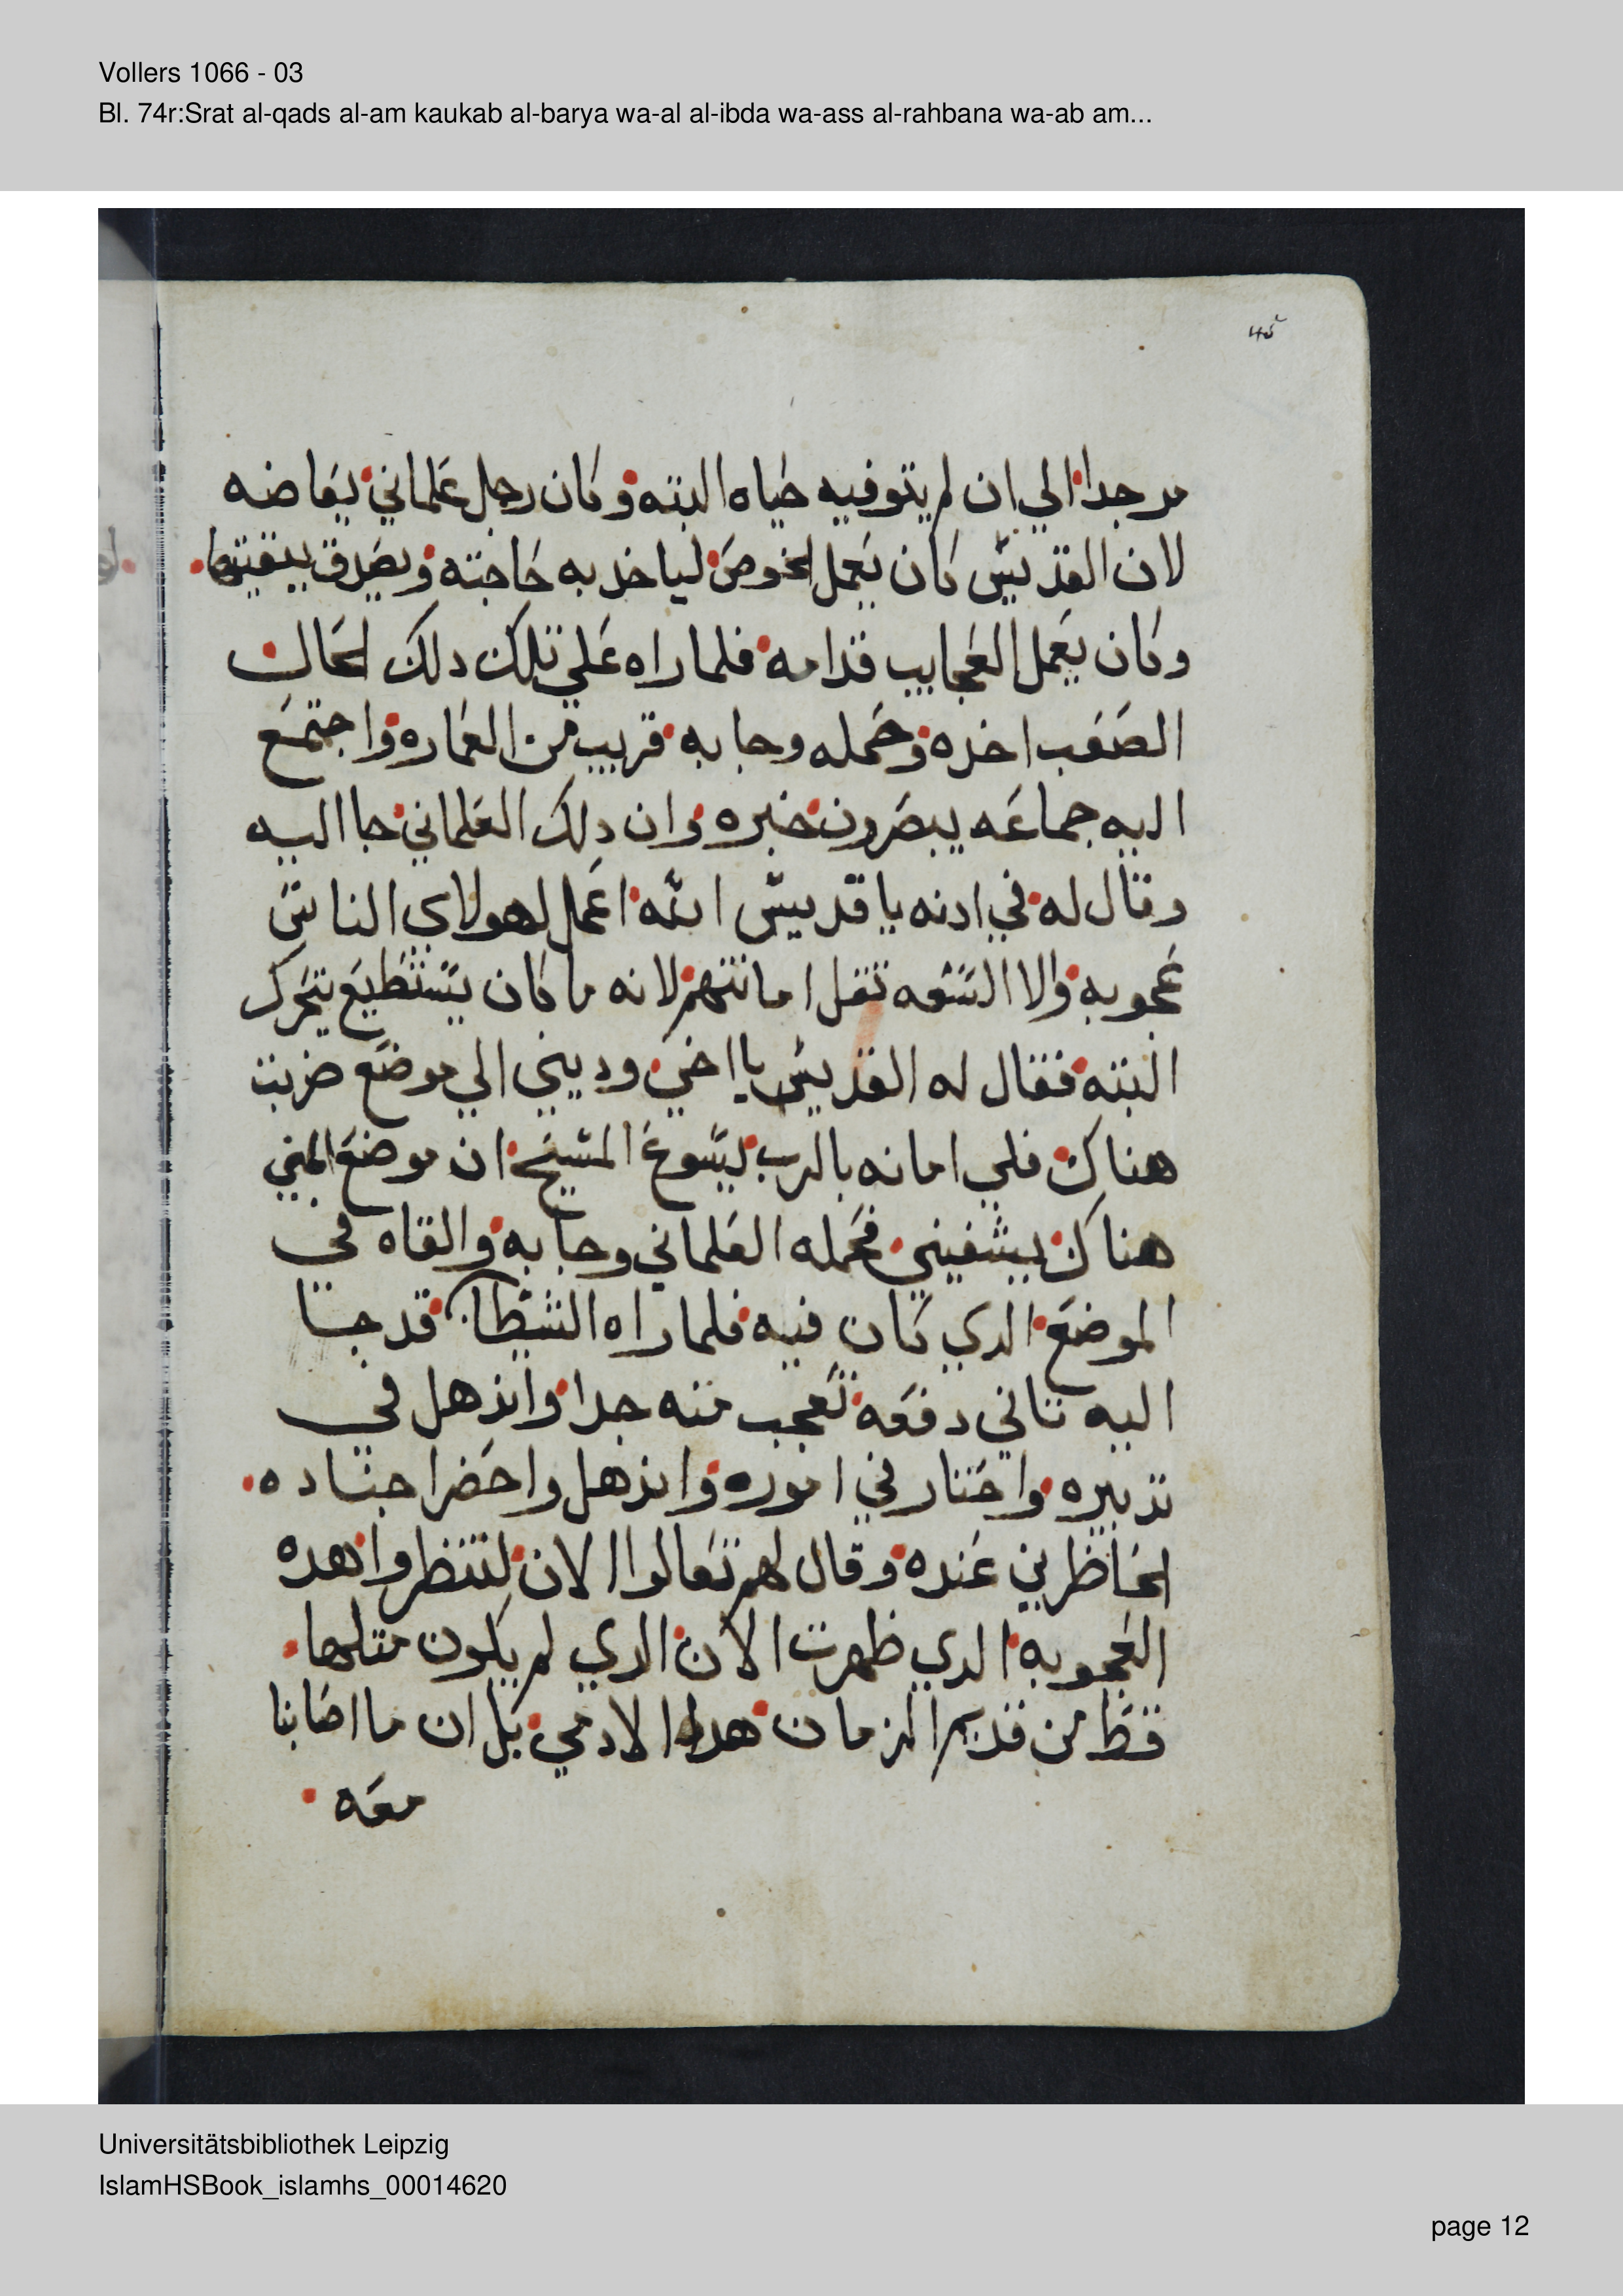 Vollers 1066 - 03
Bl. 74r:Srat al-qads al-am kaukab al-barya wa-al al-ibda wa-ass al-rahbana wa-ab am...
مر جدا الي ان لم يتوفيه حياه البته وكان رجل علماني يعاضه
لان القديس كان يعمل الخوص لياخد به حاجته ويصدق ببقيتها
وكان يعمل العجايب قدامه فلما راه علي تلك دلك الحال
الصعب اخده وحمله وجا به قريب من العماره واجتمع
اليه جماعه يبصرون خبره وان دلك العلماني جا اليه
وقال له في ادنه يا قديس الله اعمل لهولاي الناس
عجوبه والا السعه تقل امانتهم لانه ما كان يستطيع يتحرك
البته فقال له القديس يا اخي وديني الي موضع ضربت
هناك فلي امانه بالرب يسوع المسيح ان موضع المني
هناك يشفيني فحمله العلماني وجا به والقاه في
الموضع الدي كان فيه فلما راه الشيطان قد جا
اليه تاني دفعه تعجب منه جدا واندهل في
تدبيره واحتار في اموره واندهل واحضر اجناده
الحاظرين عنده وقال لهم تعالوا الان لتنظروا هده
العجوبه الدي ظهرت الان الدي لم يكون متلها
قط من قديم الزمان هدا الادمي بل ان ما اصابنا
معه
Universitätsbibliothek Leipzig
IslamHSBook_islamhs_00014620
page 12